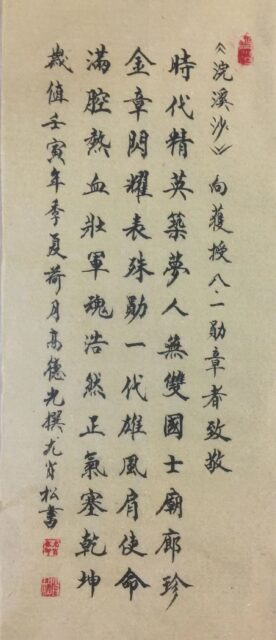 《浣溪沙》向獲授八·一勛章者致敬
時代精英築夢人無雙國士廟廊珍
金章閃耀表殊勛一代雄風肩使命
滿腔熱血壯軍魂浩然正氣塞乾坤
歲值壬寅年季夏荷月高德光撰尤育松書